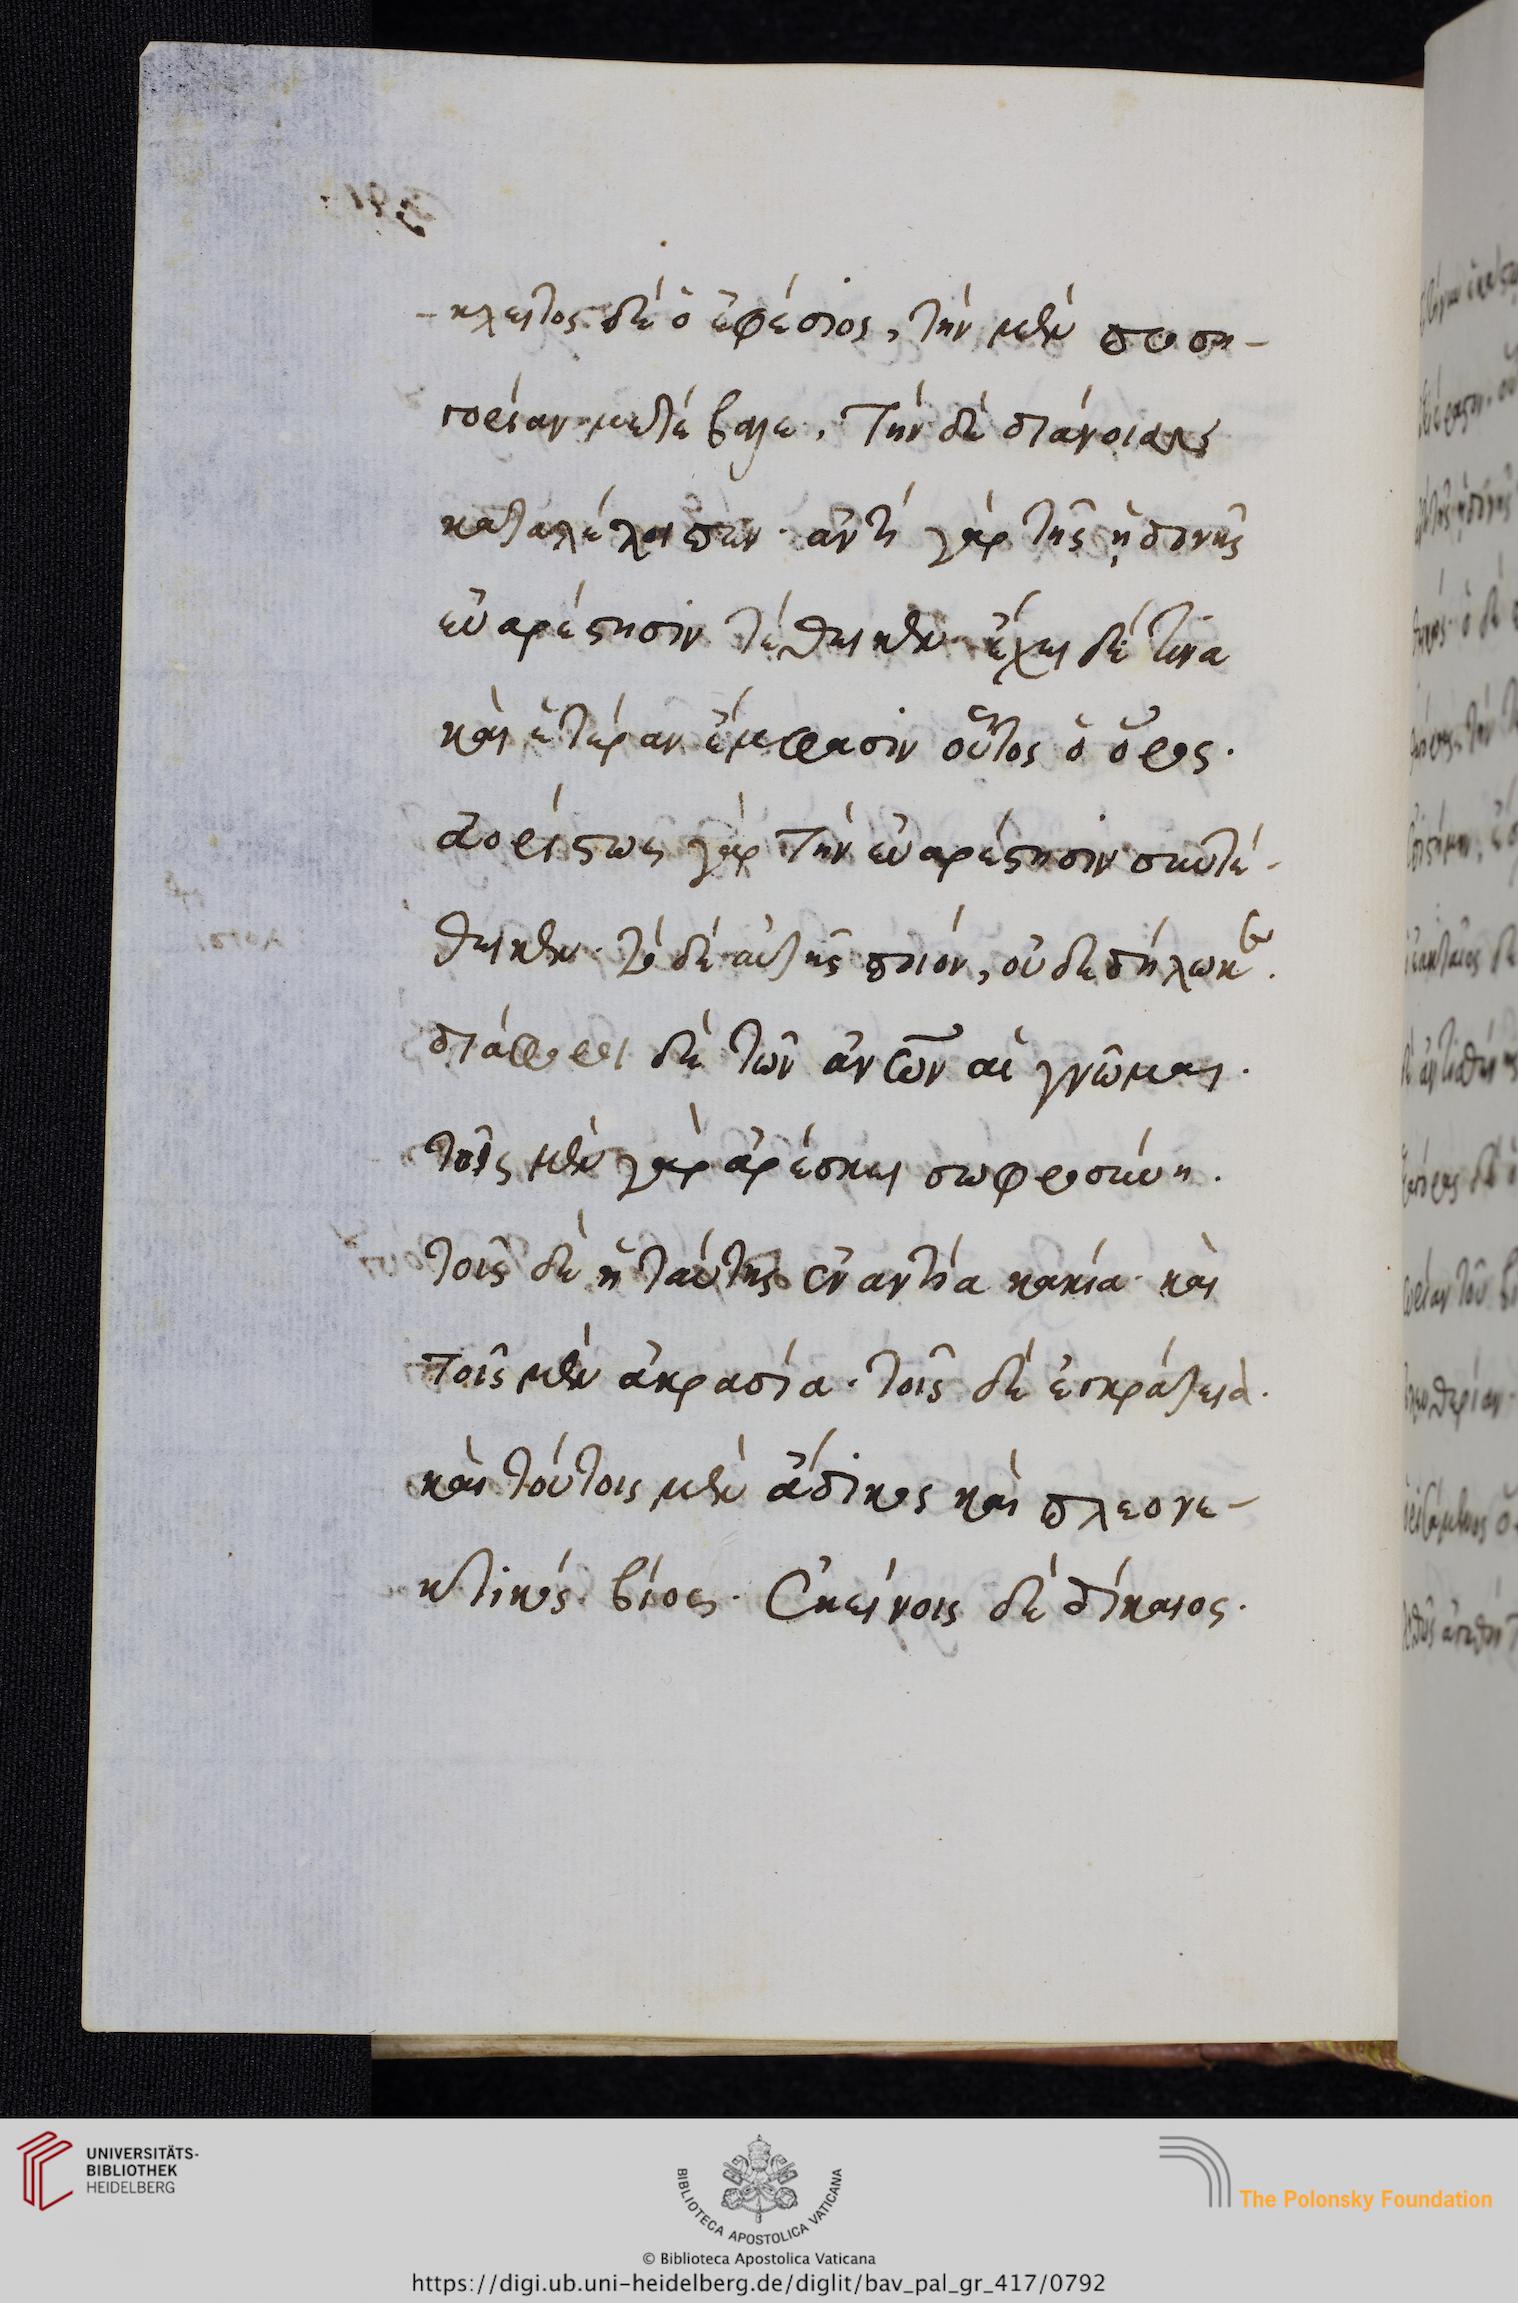 -κλειτος δὲ ὁ ἐφέσιος, τὴν μὲν προση-
γορίαν μετέβαλε, τὴν δὲ διάνοιαν
καταλέλοιπεν· ἀντὶ γὰρ τῆς ἡδονῆς
εὐαρέστησιν τέθεικεν· ἔχει δέ τινα
καὶ ἑτέραν ἔμφασιν οὗτος ὁ ὅρος·
ἀορίστως γὰρ τὴν εὐαρέστησιν
θεικεν· τὸ δὲ αὐτῆς ποιὸν, οὐ δεδήλωκεν·
διάφοροι δὲ τῶν ἀνων αἱ γνῶμαι·
τοῖς μὲν γὰρ ἀρέσκει σωφροσύνη·
τοῖς δὲ ἡ ταύτης ἐναντία κακία· καὶ
τοῖς μὲν ἀκρασία· τοῖς δὲ ἐγκράτεια·
καὶ τούτοις μὲν ἄδικος καὶ πλεονε-
κτικὸς βίος· ἐκείνοις δὲ δίκαιος·
UNIVERSITÄTS-
BIBLIOTHEK
HEIDELBERG
BIBLIOTECA APOSTOLICA VATICANA
The Polonsky Foundation
© Biblioteca Apostolica Vaticana
https://digi.ub.uni-heidelberg.de/diglit/bav_pal_gr_417/0792